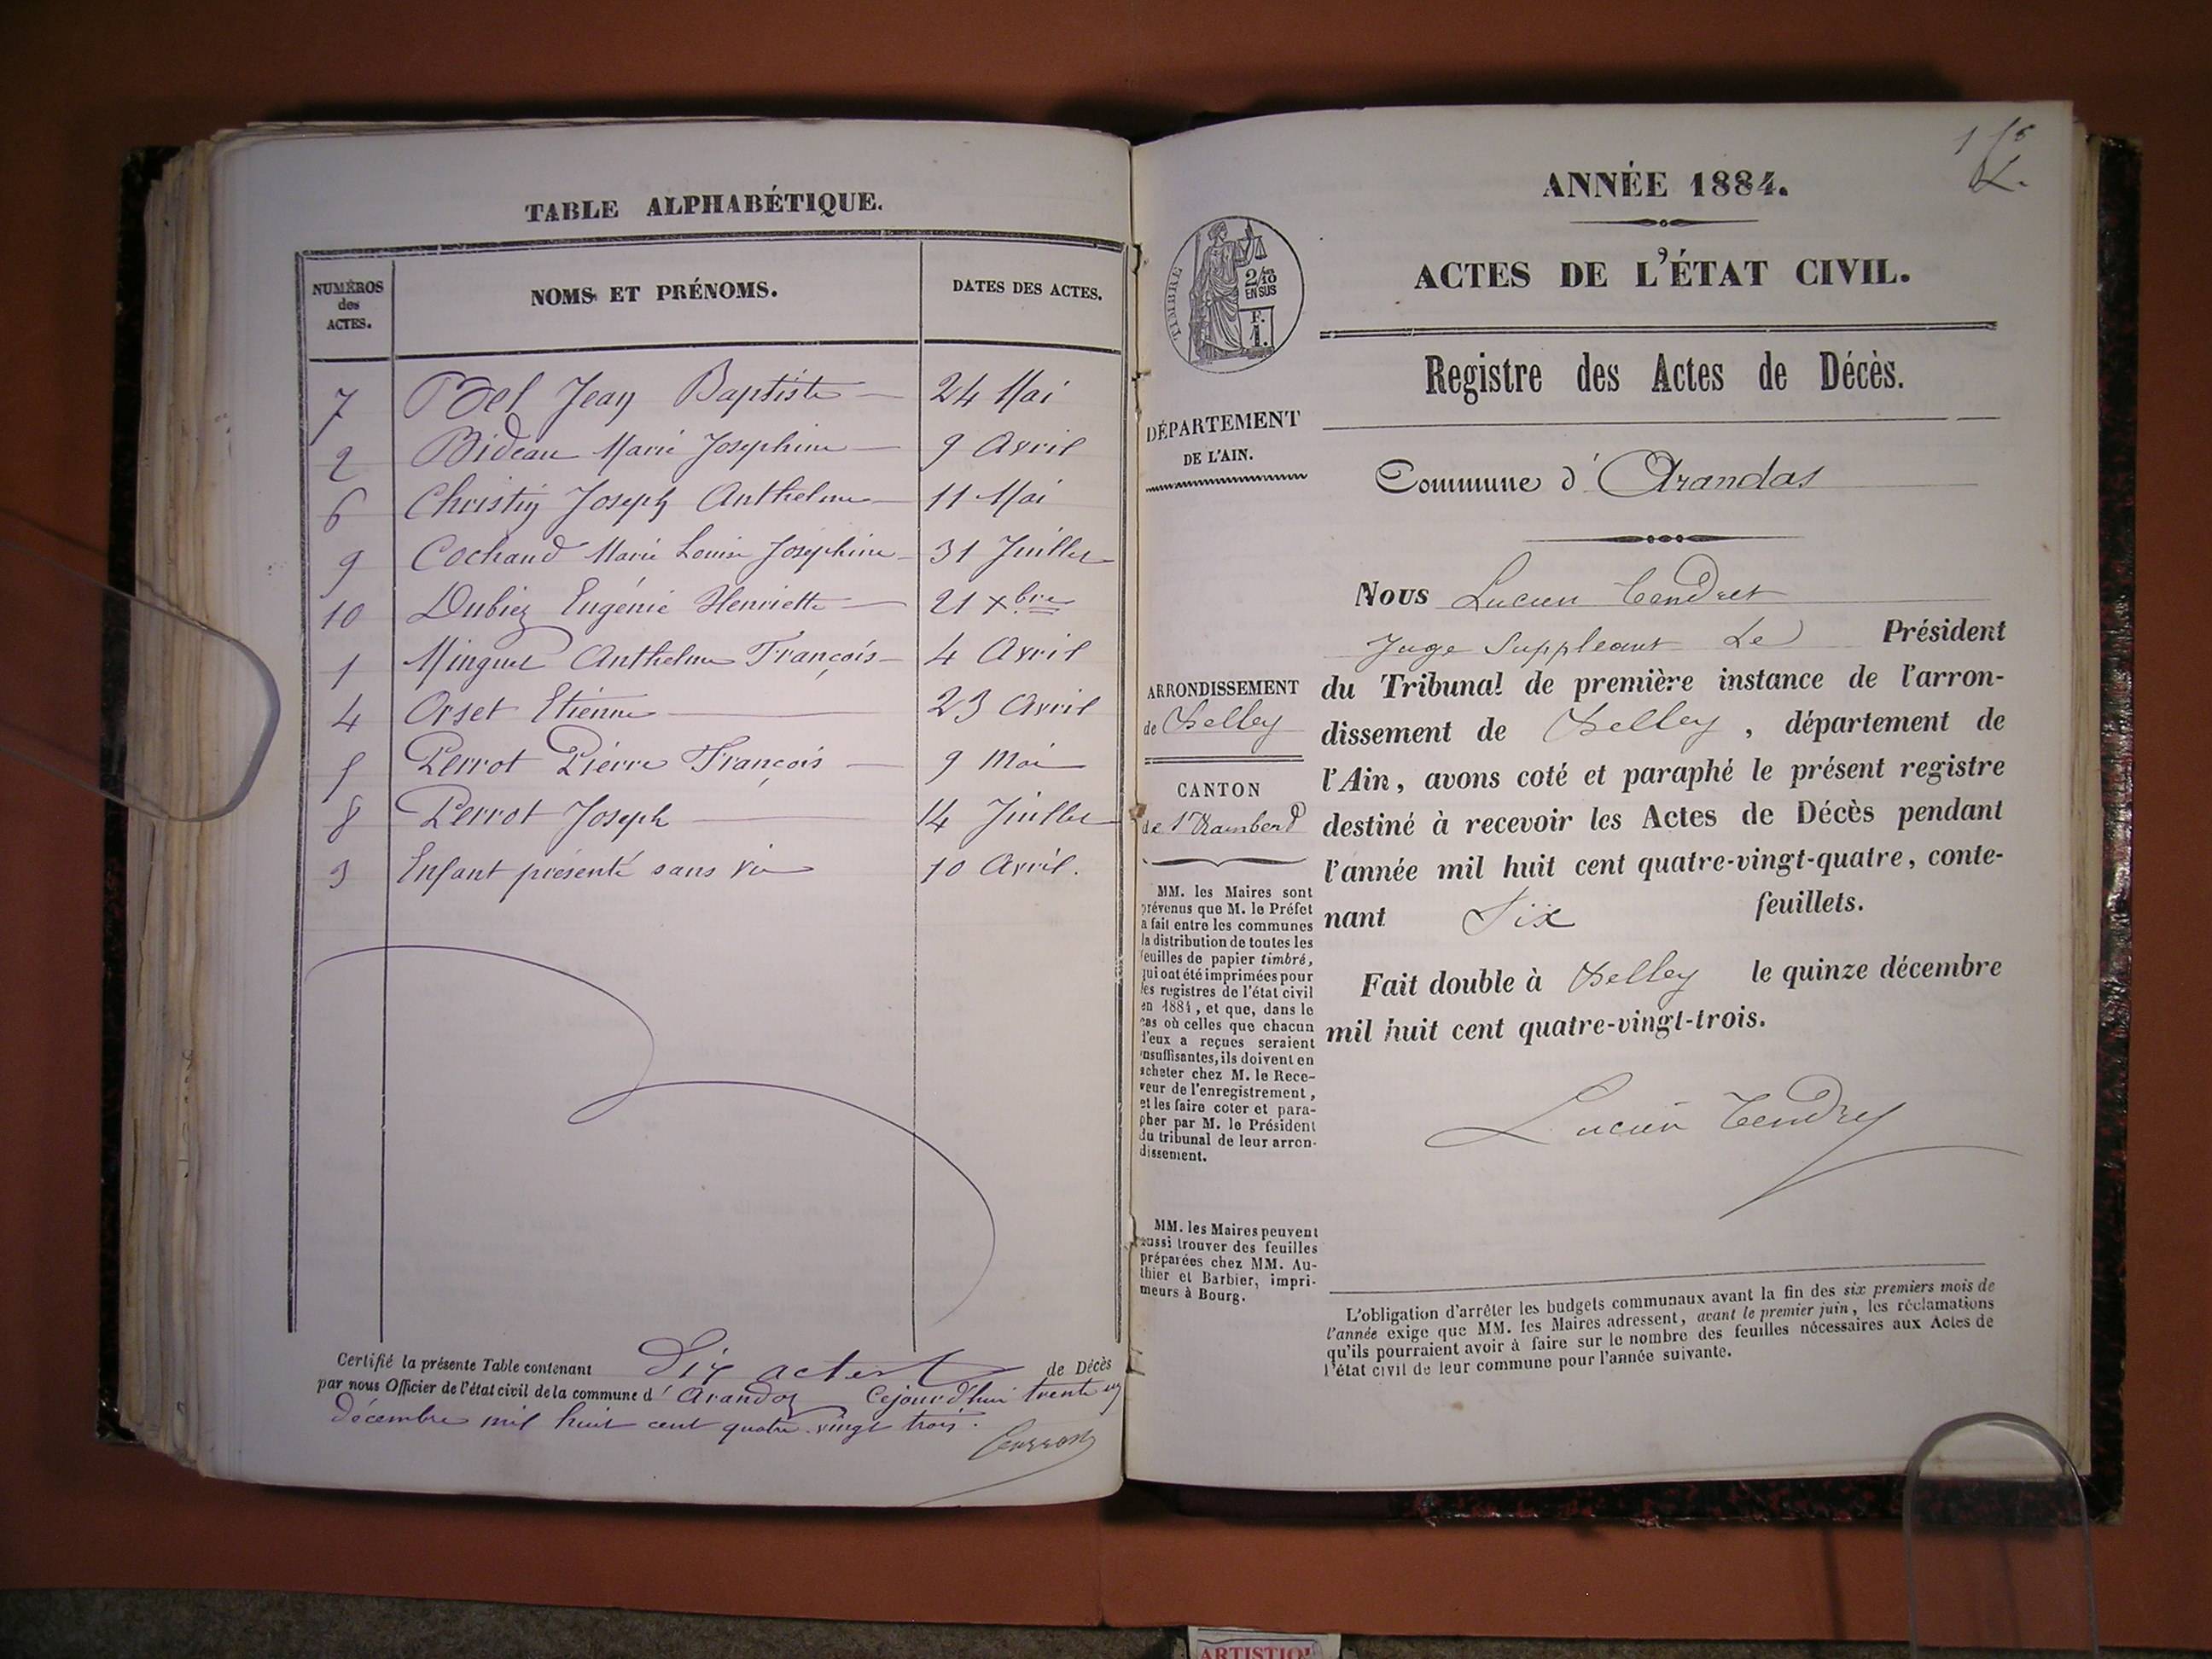 TABLE ALPHABÉTIQUE.
NUMÉROS des ACTES. NOMS ET PRÉNOMS. DATES DES ACTES.
7 Bel Jean Baptiste 24 Mai
2 Bideau Marie Josephine 9 Avril
6 Christin Joseph Anthelme 11 Mai
9 Cochaud Marie Louise Joséphine 31 Juillet
10 Dubiez Eugénie Henriette 21 Xbre
1 Minguet Anthelme François 4 Avril
4 Orset Etienne 23 Avril
5 Perrot Pierre François 9 Mai
8 Perrot Joseph 14 Juillet
3 Enfant présenté sans vie 10 Avril.
Certifié la présente Table contenant Dix actes de Décès
par nous Officier de l'état civil de la commune d' Arandas Cejourd'hui trente un
décembre mil huit cent quatre vingt trois.
ANNÉE 1884.
ACTES DE L'ÉTAT CIVIL.
TIMBRE
2/10
EN SUS
F.
1.
Registre des Actes de Décès.
DÉPARTEMENT
DE L'AIN.
Commune d' Arandas
Nous Lucien Tendret
Juge Suppleant Le Président
du Tribunal de première instance de l'arron-
dissement de Belley, département de
l'Ain, avons coté et paraphé le présent registre
destiné à recevoir les Actes de Décès pendant
l'année mil huit cent quatre-vingt-quatre, conte-
nant Six feuillets.
Fait double à Belley le quinze décembre
mil huit cent quatre-vingt-trois.
Lucien Tendret
ARRONDISSEMENT
de Belley
CANTON
de St Rambert
MM. les Maires sont
prévenus que M. le Préfet
a fait entre les communes
la distribution de toutes les
feuilles de papier timbré,
qui ont été imprimées pour
les registres de l'état civil
en 1884, et que, dans le
cas où celles que chacun
d'eux a reçues seraient
insuffisantes, ils doivent en
acheter chez M. le Rece-
veur de l'enregistrement,
et les faire coter et para-
pher par M. le Président
du tribunal de leur arron-
dissement.
MM. les Maires peuvent
aussi trouver des feuilles
préparées chez MM. Au-
thier et Barbier, impri-
meurs à Bourg.
L'obligation d'arrêter les budgets communaux avant la fin des six premiers mois de
l'année exige que MM. les Maires adressent, avant le premier juin, les réclamations
qu'ils pourraient avoir à faire sur le nombre des feuilles nécessaires aux Actes de
l'état civil de leur commune pour l'année suivante.